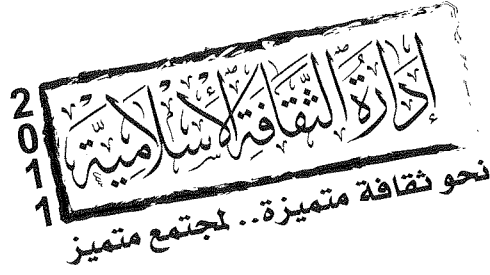 إدارة الثقافة الإسلامية
2011
نحو ثقافة متميزة.. لمجتمع متميز